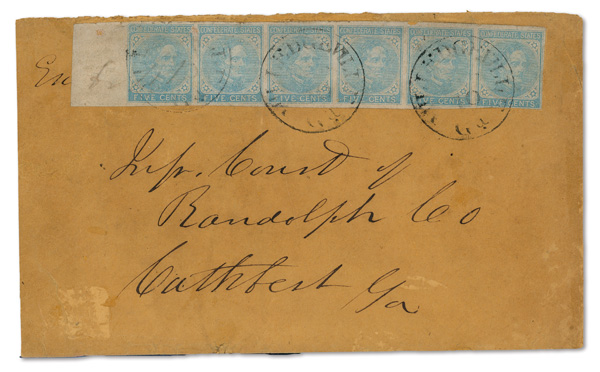 CONFEDERATE STATES CONFEDERATE STATES CONFEDERATE STATES CONFEDERATE STATES CONFEDERATE STATES CONFEDERATE STATES
FIVE CENTS FIVE CENTS FIVE CENTS FIVE CENTS FIVE CENTS FIVE CENTS
MILLEDGEVILLE GA
MILLEDGEVILLE GA
Inf. Court of
Randolph Co
Cuthbert Ga